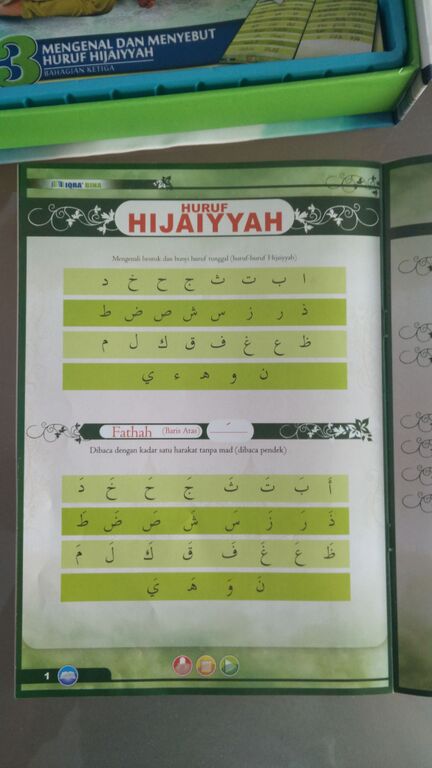 3 MENGENAL DAN MENYEBUT
HURUF HIJAIYYAH
BAHAGIAN KETIGA
IQRA' BINA
HURUF
HIJAIYYAH
Mengenali bentuk dan bunyi huruf tunggal (huruf-huruf Hijaiyyah)
ا ب ت ث ج ح خ د
ذ ر ز س ش ص ض ط
ظ ع غ ف ق ك ل م
ن و ه ء ي
Fathah (Baris Atas) ـَ
Dibaca dengan kadar satu harakat tanpa mad (dibaca pendek)
أَ بَ تَ ثَ جَ حَ خَ دَ
ذَ رَ زَ سَ شَ صَ ضَ طَ
ظَ عَ غَ فَ قَ كَ لَ مَ
نَ وَ هَ يَ
1